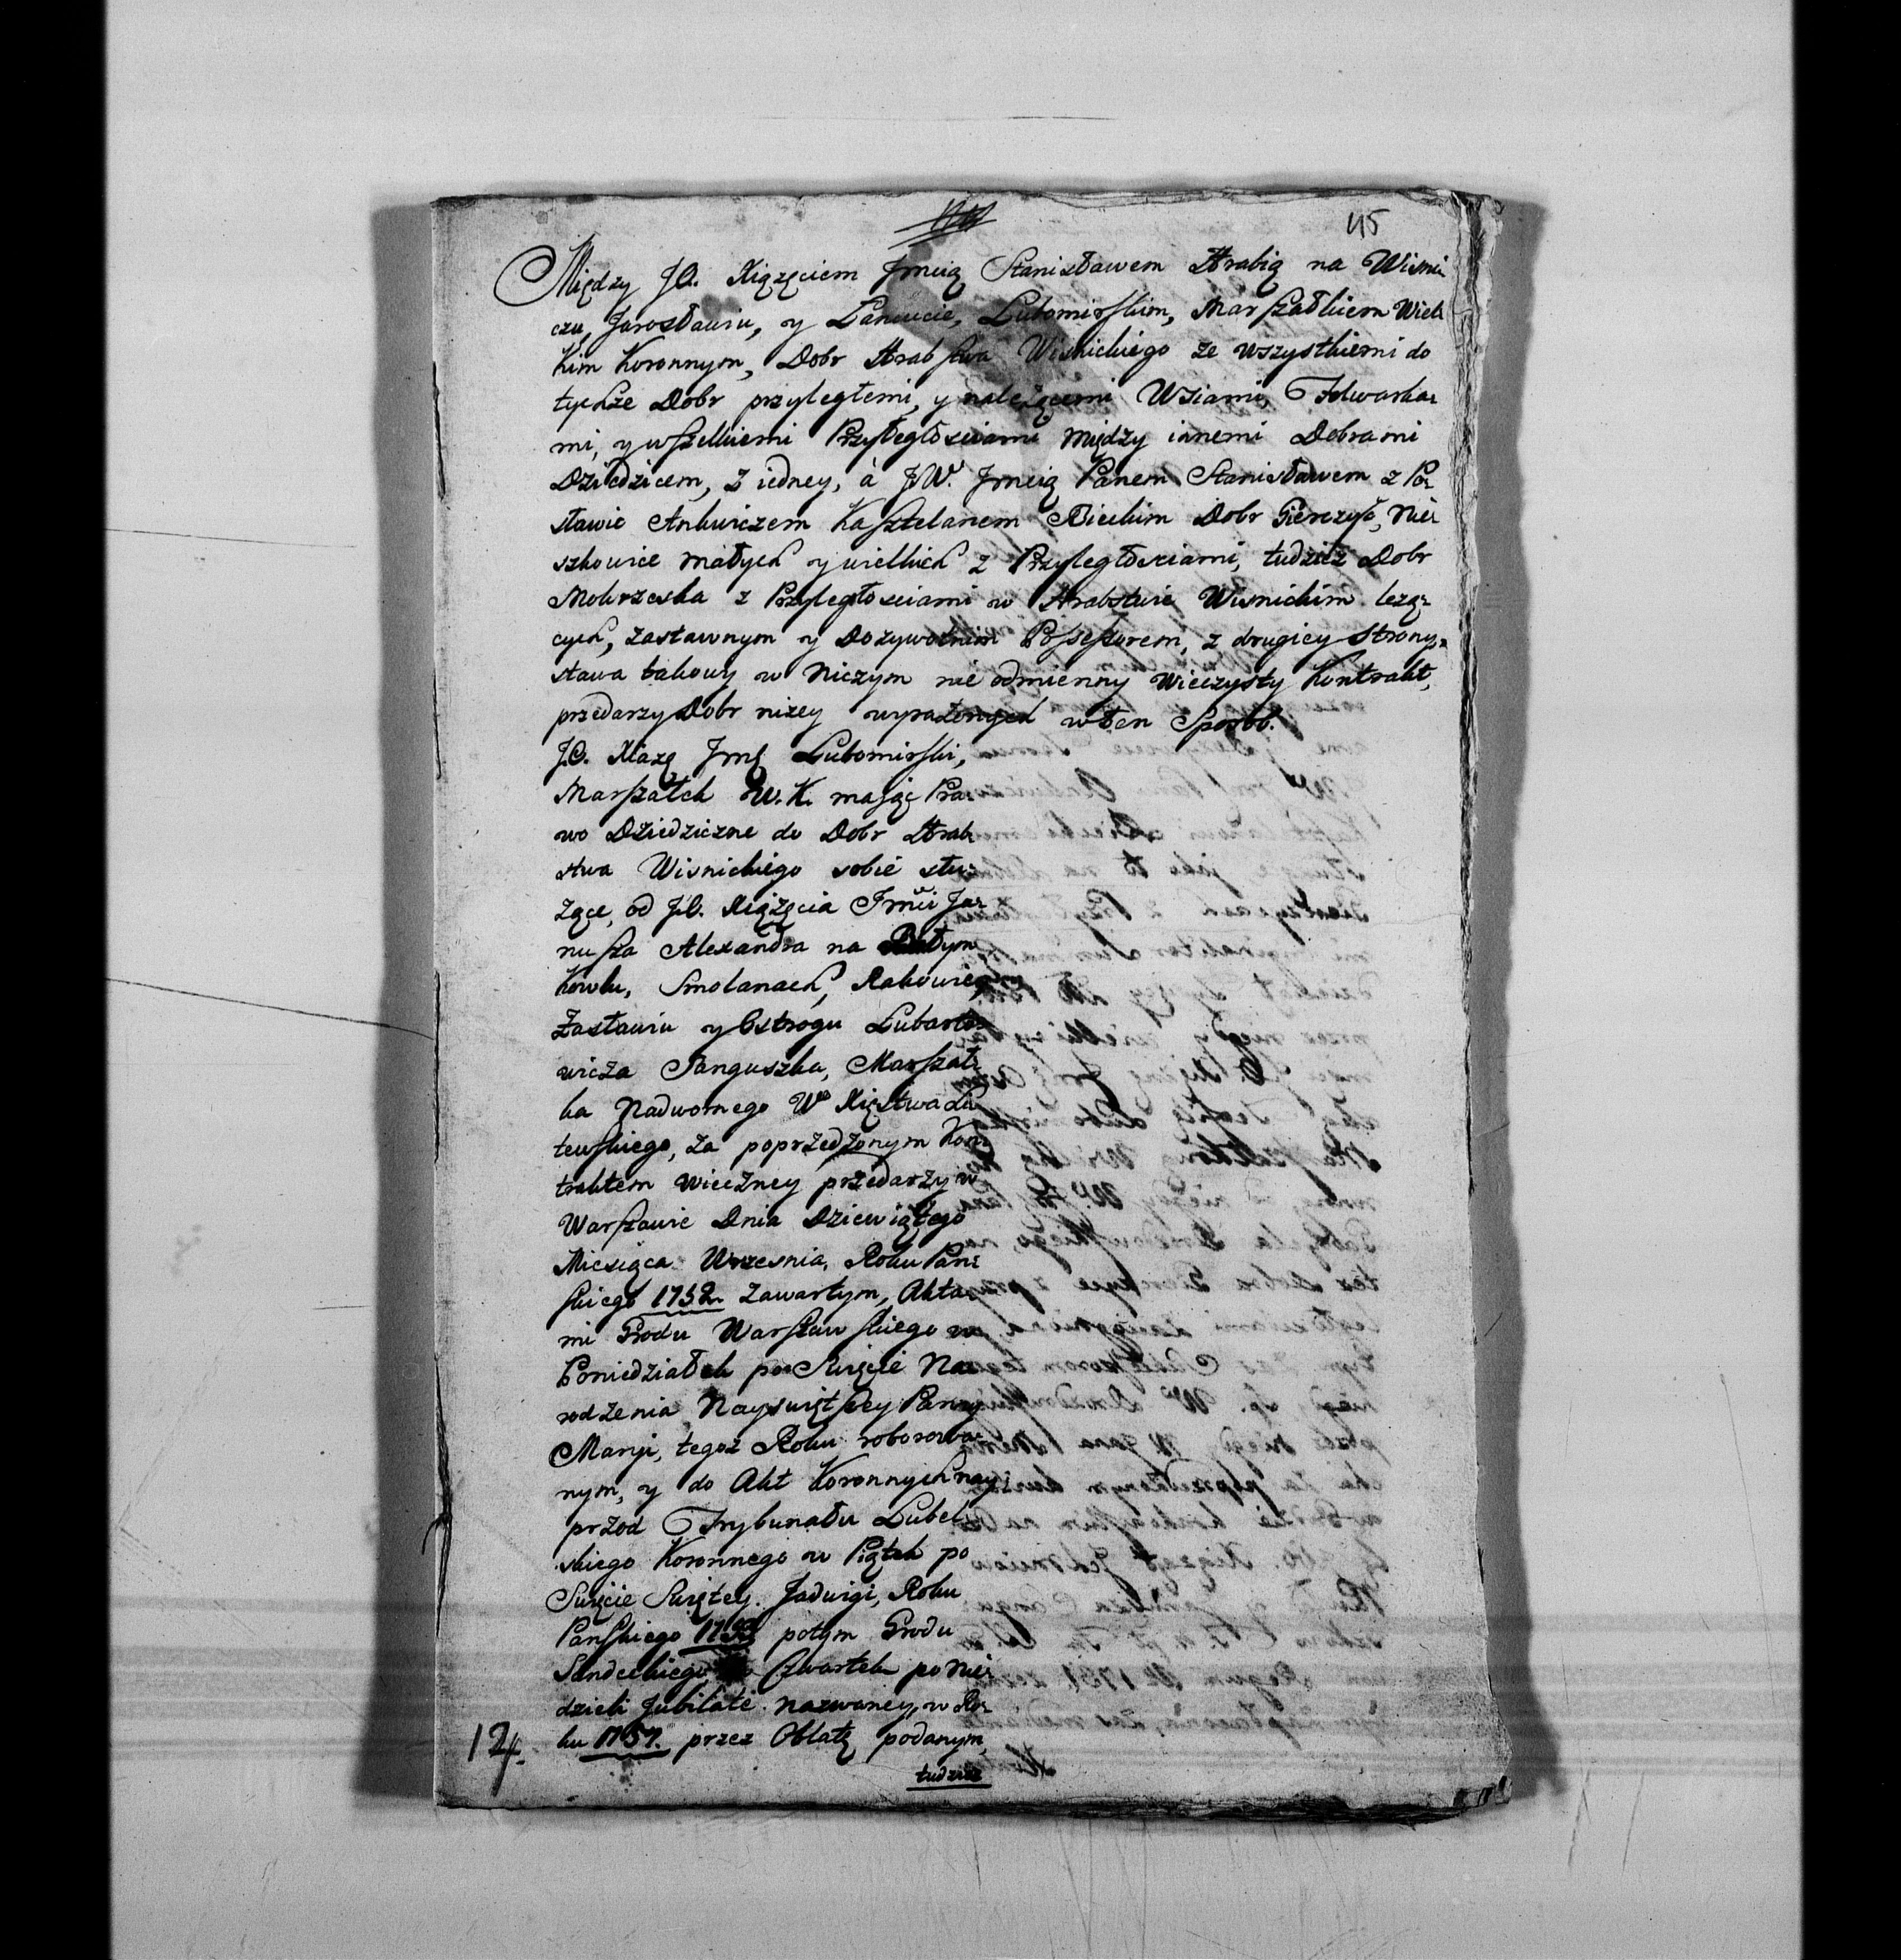 45
Między J.O. Xiążęciem Jmcią Stanisławem Hrabią na Wisni=
czu, Jarosławiu, y Łancucie, Lubomirskim, Marszałkiem Wiel=
kim Koronnym, Dobr Hrabstwa Wisnickiego ze wszystkiemi do
tychże Dobr przyległemi, y należącemi Wsiami, Folwarka=
mi, y wszelkiemi Przyległosciami między innemi Dobrami
Dziedzicem, z iedney, à JW. Jmcią Panem Stanisławem z Po=
sławic Ankwiczem Kasztelanem Bieckim Dobr Gierczyc, Nie=
szkowic małych y wielkich z Przyległosciami, tudzież Dobr
Mokrzeska z Przyległosciami w Hrabstwie Wisnickim leżą=
cych, zastawnym y Dożywotnim Possessorem, z drugiey strony,
stawa takowy w niczym nie odmienny Wieczysty Kontrakt,
przedarzy Dobr niżey wyrażonych w ten Sposob.
J.O. Xiążę Jmć Lubomirski,
Marszałek W. K. mając Pra=
wo Dziedziczne do Dobr Hrab=
stwa Wisnickiego sobie słu=
żące, od J.O. Xiążęcia Jmci Ja=
nusza Alexandra na Białym
Kowlu, Smolanach, Rakowie,
Zasławiu y Ostrogu Lubarto=
wicza Sanguszka, Marszał=
ka Nadwornego W° Xięstwa Li=
tewskiego, za poprzedzonym Kon=
traktem wieczney przedarzy w
Warszawie Dnia Dziewiątego
Miesiąca Wrzesnia, Roku Pań=
skiego 1752. zawartym, Akta=
mi Grodu Warszawskiego w
Poniedziałek po Swięcie Na=
rodzenia Nayswiętszey Panny
Maryi, tegoż Roku roborowa=
nym, y do Akt Koronnych nay=
przod Trybunału Lubel=
skiego Koronnego w Piątek po
Swięcie Swiętey Jadwigi, Roku
Pańskiego potym Grodu
Sandeckiego Czwartek po Nie=
dzieli Jubilate nazwaney, w Ro=
ku 1757. przez Oblatę podanym,
tudziesz
124.